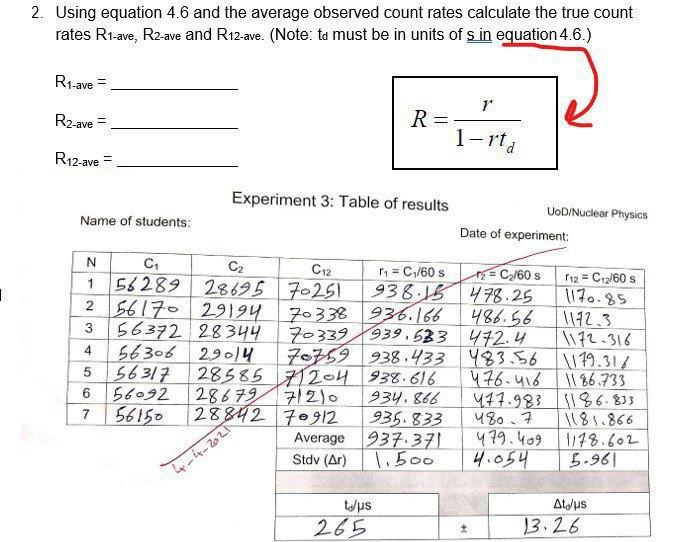 2. Using equation 4.6 and the average observed count rates calculate the true count
rates R1-ave, R2-ave and R12-ave. (Note: td must be in units of s in equation 4.6.)
R1-ave = ____________
R2-ave = ____________
R12-ave = ____________
R = r / 1 − rtd
Experiment 3: Table of results
UoD/Nuclear Physics
Name of students:
Date of experiment:
N C1 C2 C12 r1 = C1/60 s r2 = C2/60 s r12 = C12/60 s
1 56289 28695 70251 938.15 478.25 1170.85
2 56170 29194 70338 936.166 486.56 1172.3
3 56372 28344 70339 939.533 472.4 1172.316
4 56306 29014 70759 938.433 483.56 1179.316
5 56317 28585 71204 938.616 476.416 1186.733
6 56092 28679 71210 934.866 477.983 1186.833
7 56150 28842 70912 935.833 480.7 1181.866
Average 937.371 479.409 1178.602
Stdv (Δr) 1.500 4.054 5.961
4-4-2021
td/μs Δtd/μs
265 ± 13.26